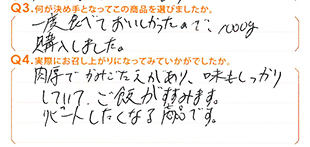 Q3.何が決め手となってこの商品を選びましたか。
一度食べておいしかったので、1000g
購入しました。
Q4.実際にお召し上がりになってみていかがでしたか。
肉厚でかみごたえがあり、味もしっかり
していて、ご飯がすすみます。
リピートしたくなる商品です。